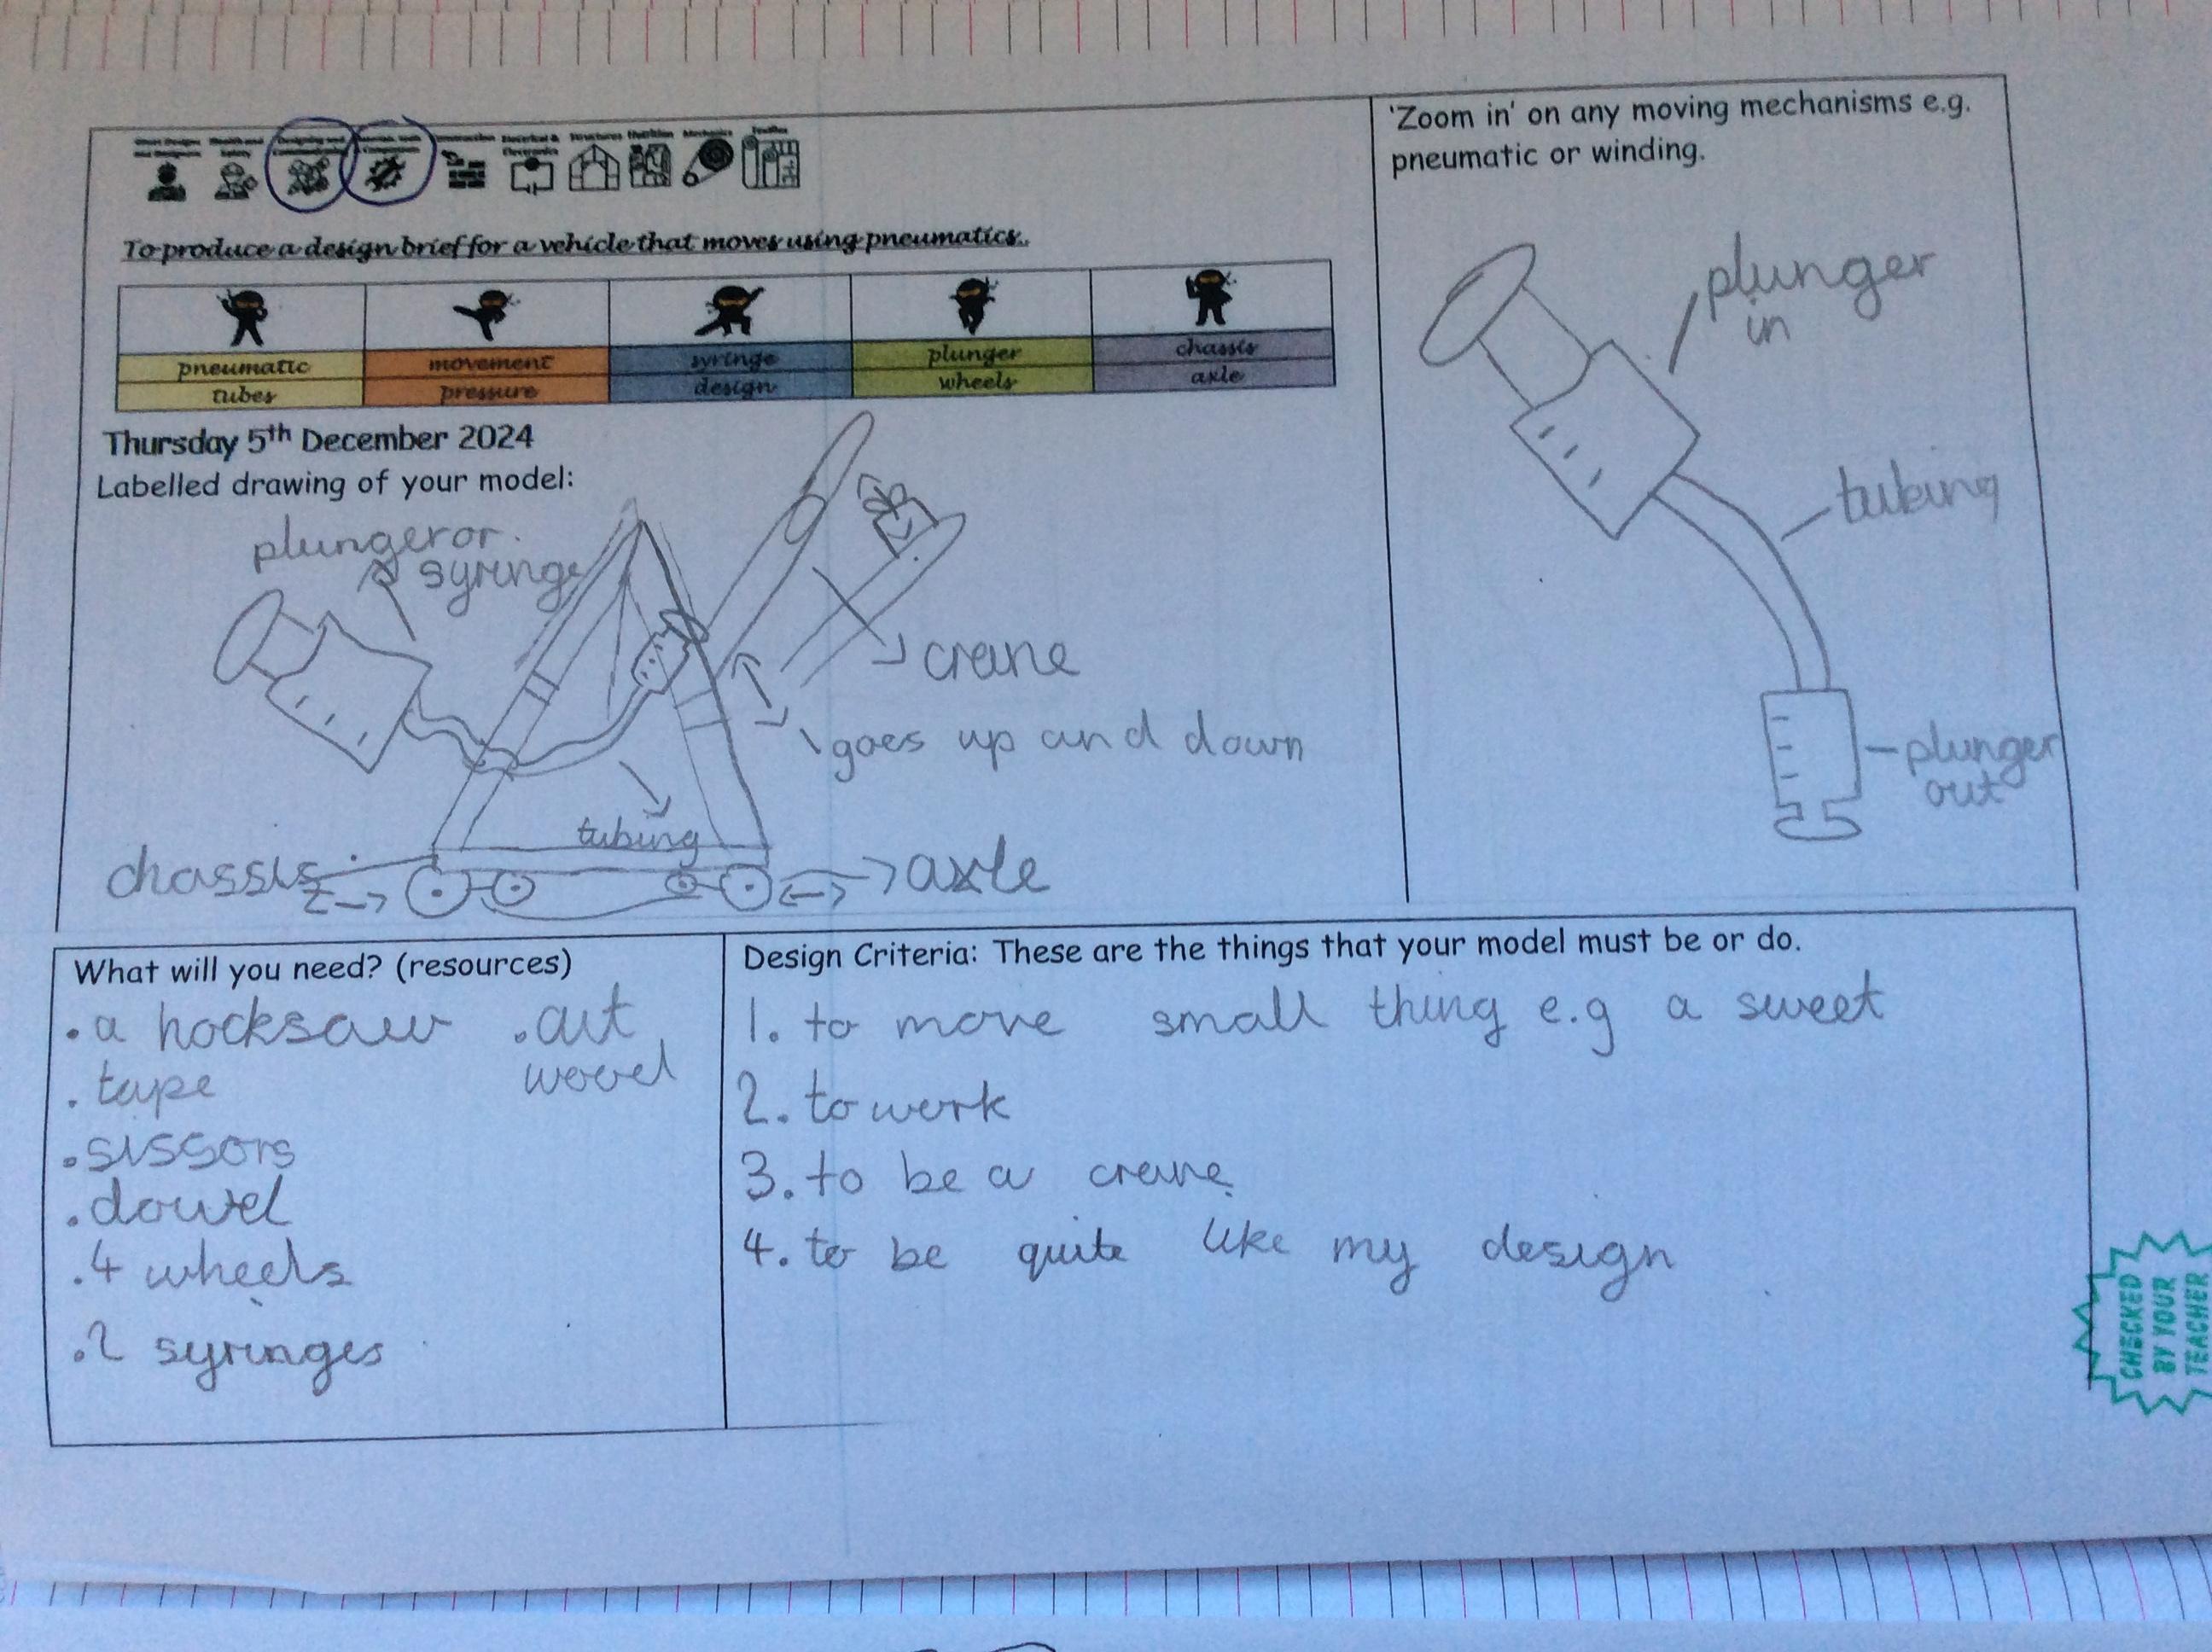 Structures
Nutrition
Mechanics
Textiles
To produce a design brief for a vehicle that moves using pneumatics.
pneumatic
movement
syringe
plunger
chassis
tubes
pressure
design
wheels
axle
Thursday 5th December 2024
Labelled drawing of your model:
plunger or
syringe
crane
goes up and down
tubing
chassis
axle
'Zoom in' on any moving mechanisms e.g.
pneumatic or winding.
plunger
in
tubing
plunger
out
What will you need? (resources)
. a hocksaw
. tape
. sissors
. dowel
. 4 wheels
. 2 syringes
Design Criteria: These are the things that your model must be or do.
1. to move small thing e.g a sweet
2. to work
3. to be a crane
4. to be quite like my design
CHECKED
BY YOUR
TEACHER